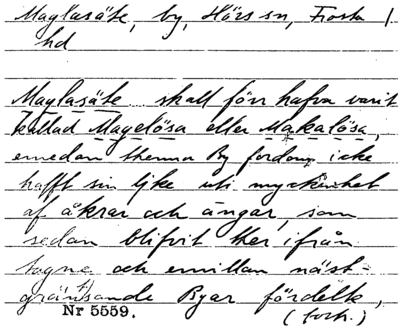 Maglasäte, by, Hörs sn, Frosta
hd
Maglasäte skall förr hafva varit
kallad Magelösa eller Makalösa,
emedan thenna By fordom icke
hafft sin lijke uti myckenhet
af åkrar och ängar, som
sedan blifvit ther ifrån
tagne och emillan näst-
gränsande Byar fördelt,
Nr 5559. (forts.)